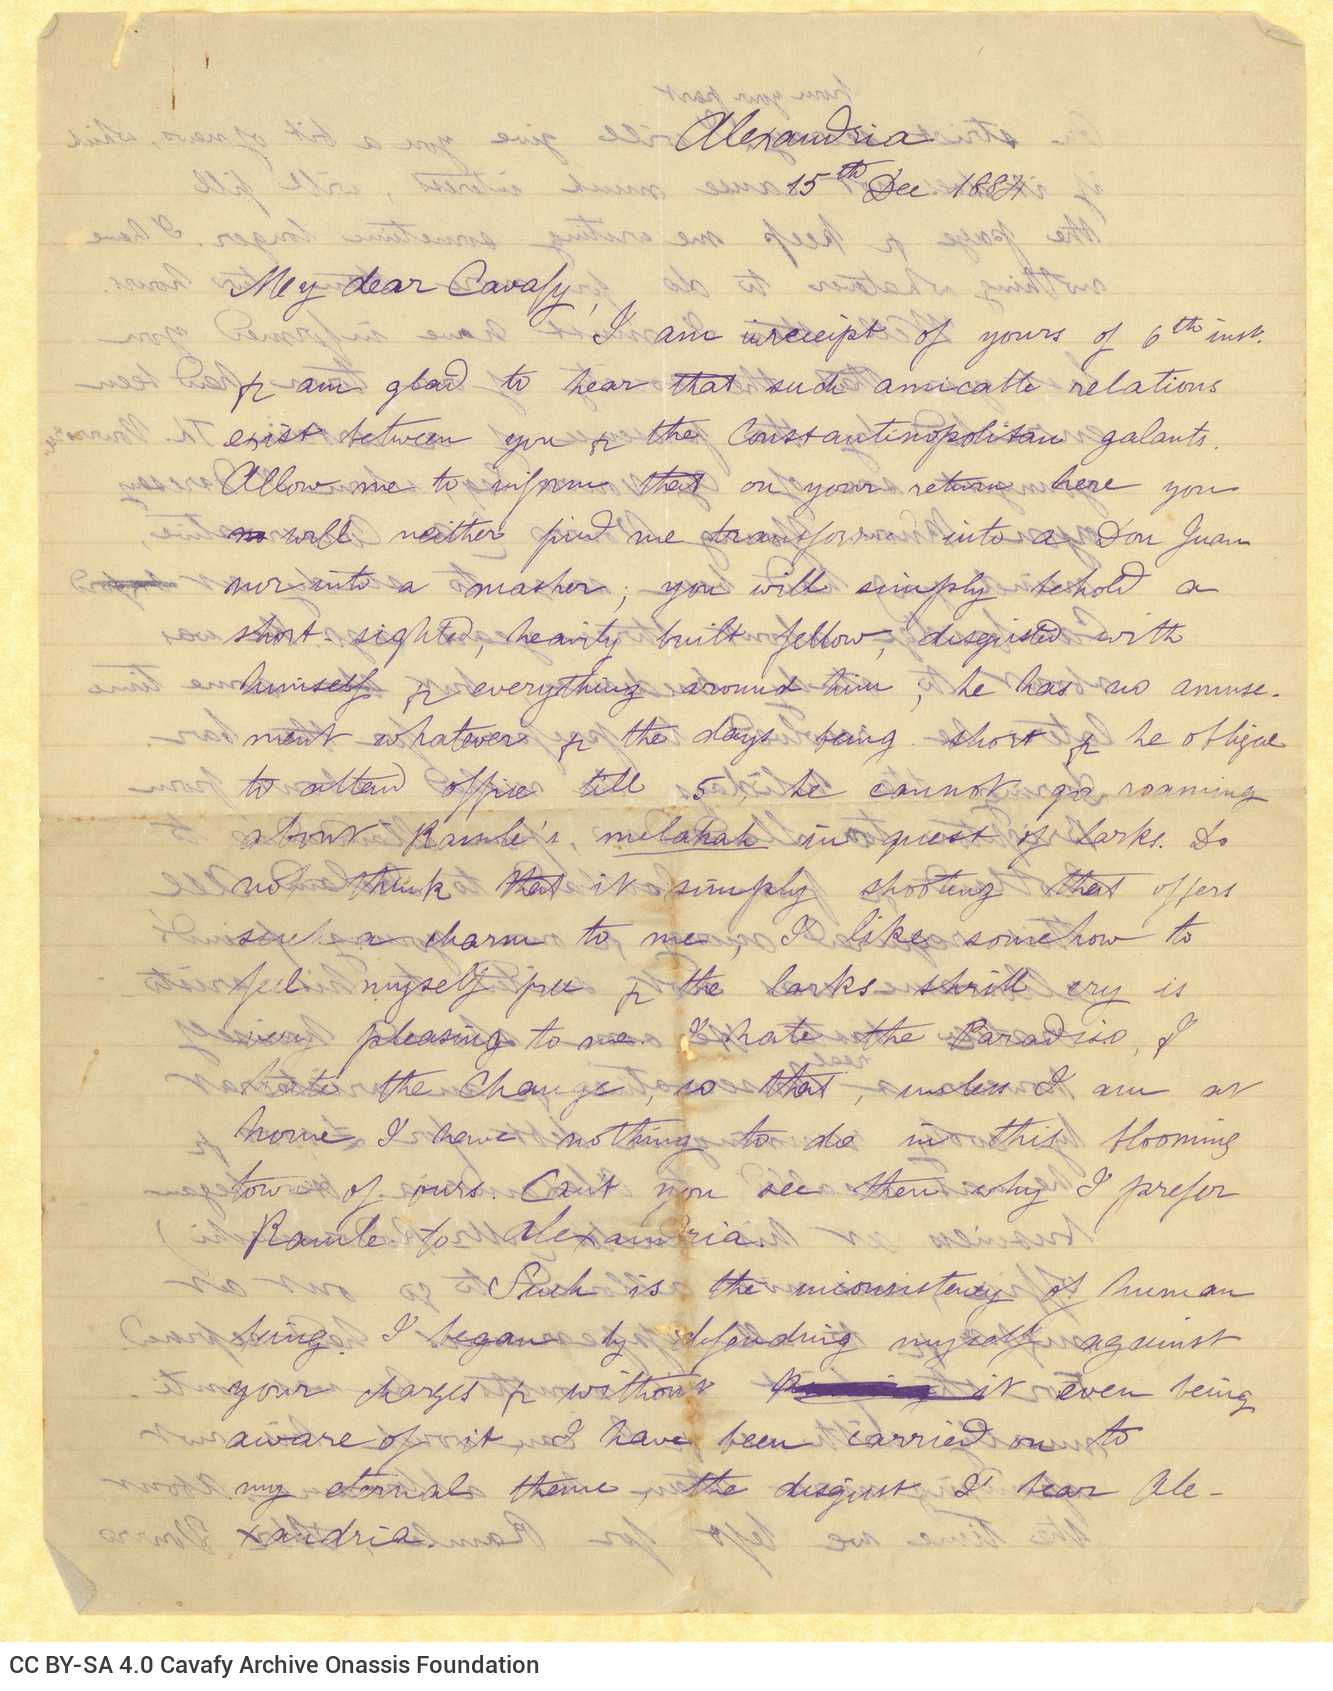 Alexandria
15th Dec 1884
My dear Cavafy,
I am in receipt of yours of 6th inst.
& am glad to hear that such amicable relations
exist between you & the Constantinopolitan galants.
Allow me to inform that on your return here you
will neither find me transform into a Don Juan
nor into a masher; you will simply behold a
short-sighted, heavily built fellow, disgusted with
himself & everything around him; he has no amuse-
ment whatever & the days being short & he oblige
to attend office till 5, he cannot go roaming
about Ramle's melahah in quest of larks. Do
not think that it simply shooting that offers
such a charm to me, I like somehow to
feel myself free & the larks shrill cry is
very pleasing to me. I hate the Paradiso, I
hate the Change, so that, unless I am at
home I have nothing to do in this blooming
town of ours. Can't you see then why I prefer
Ramle to Alexandria.
Such is the inconsistency of human
being. I began by defending myself against
your charges & without it even being
aware of it, I have been carried on to
my eternal theme, the disgust I bear Ale-
xandria.
CC BY-SA 4.0 Cavafy Archive Onassis Foundation